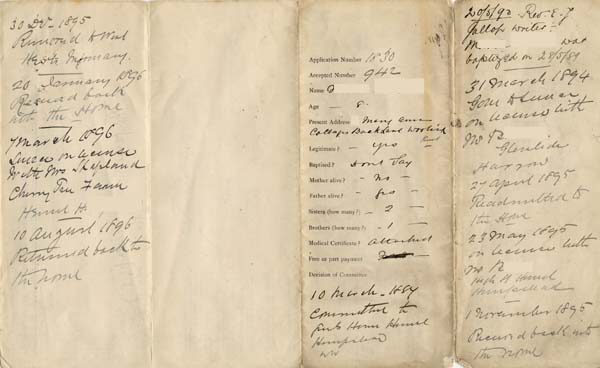 30 Dec. 1895
Removed to West
Herts Infirmary.
20 January 1896
Received back
into the Home
7 March 1896
on license
with Mrs Shepland
Cherry Tree Farm
Hemel H.
10 August 1896
Returned back to
the Home
Application Number 1830
Accepted Number 942
Name
Age 8.
Present Address Mary
Cottage Buckland
Legitimate? yes
Baptised? Dont Say
Mother alive? no
Father alive? yes
Sisters (how many?) 2
Brothers (how many?) 1
Medical Certificate? attached
Free or part payment
Decision of Committee
10 March 1889
Committee to
Home Hemel
Hempstead
20/5/93 Rev. E. J.
Gallop writes:
M was
baptized on 28/5/89
31 March 1894
on license with
Mr B
Glenlide
Harrow
27 April 1895
Readmitted to
the Home
23 May 1895
on license with
Mr R
High St Hemel
Hempstead
1 November 1895
Received back into
the Home